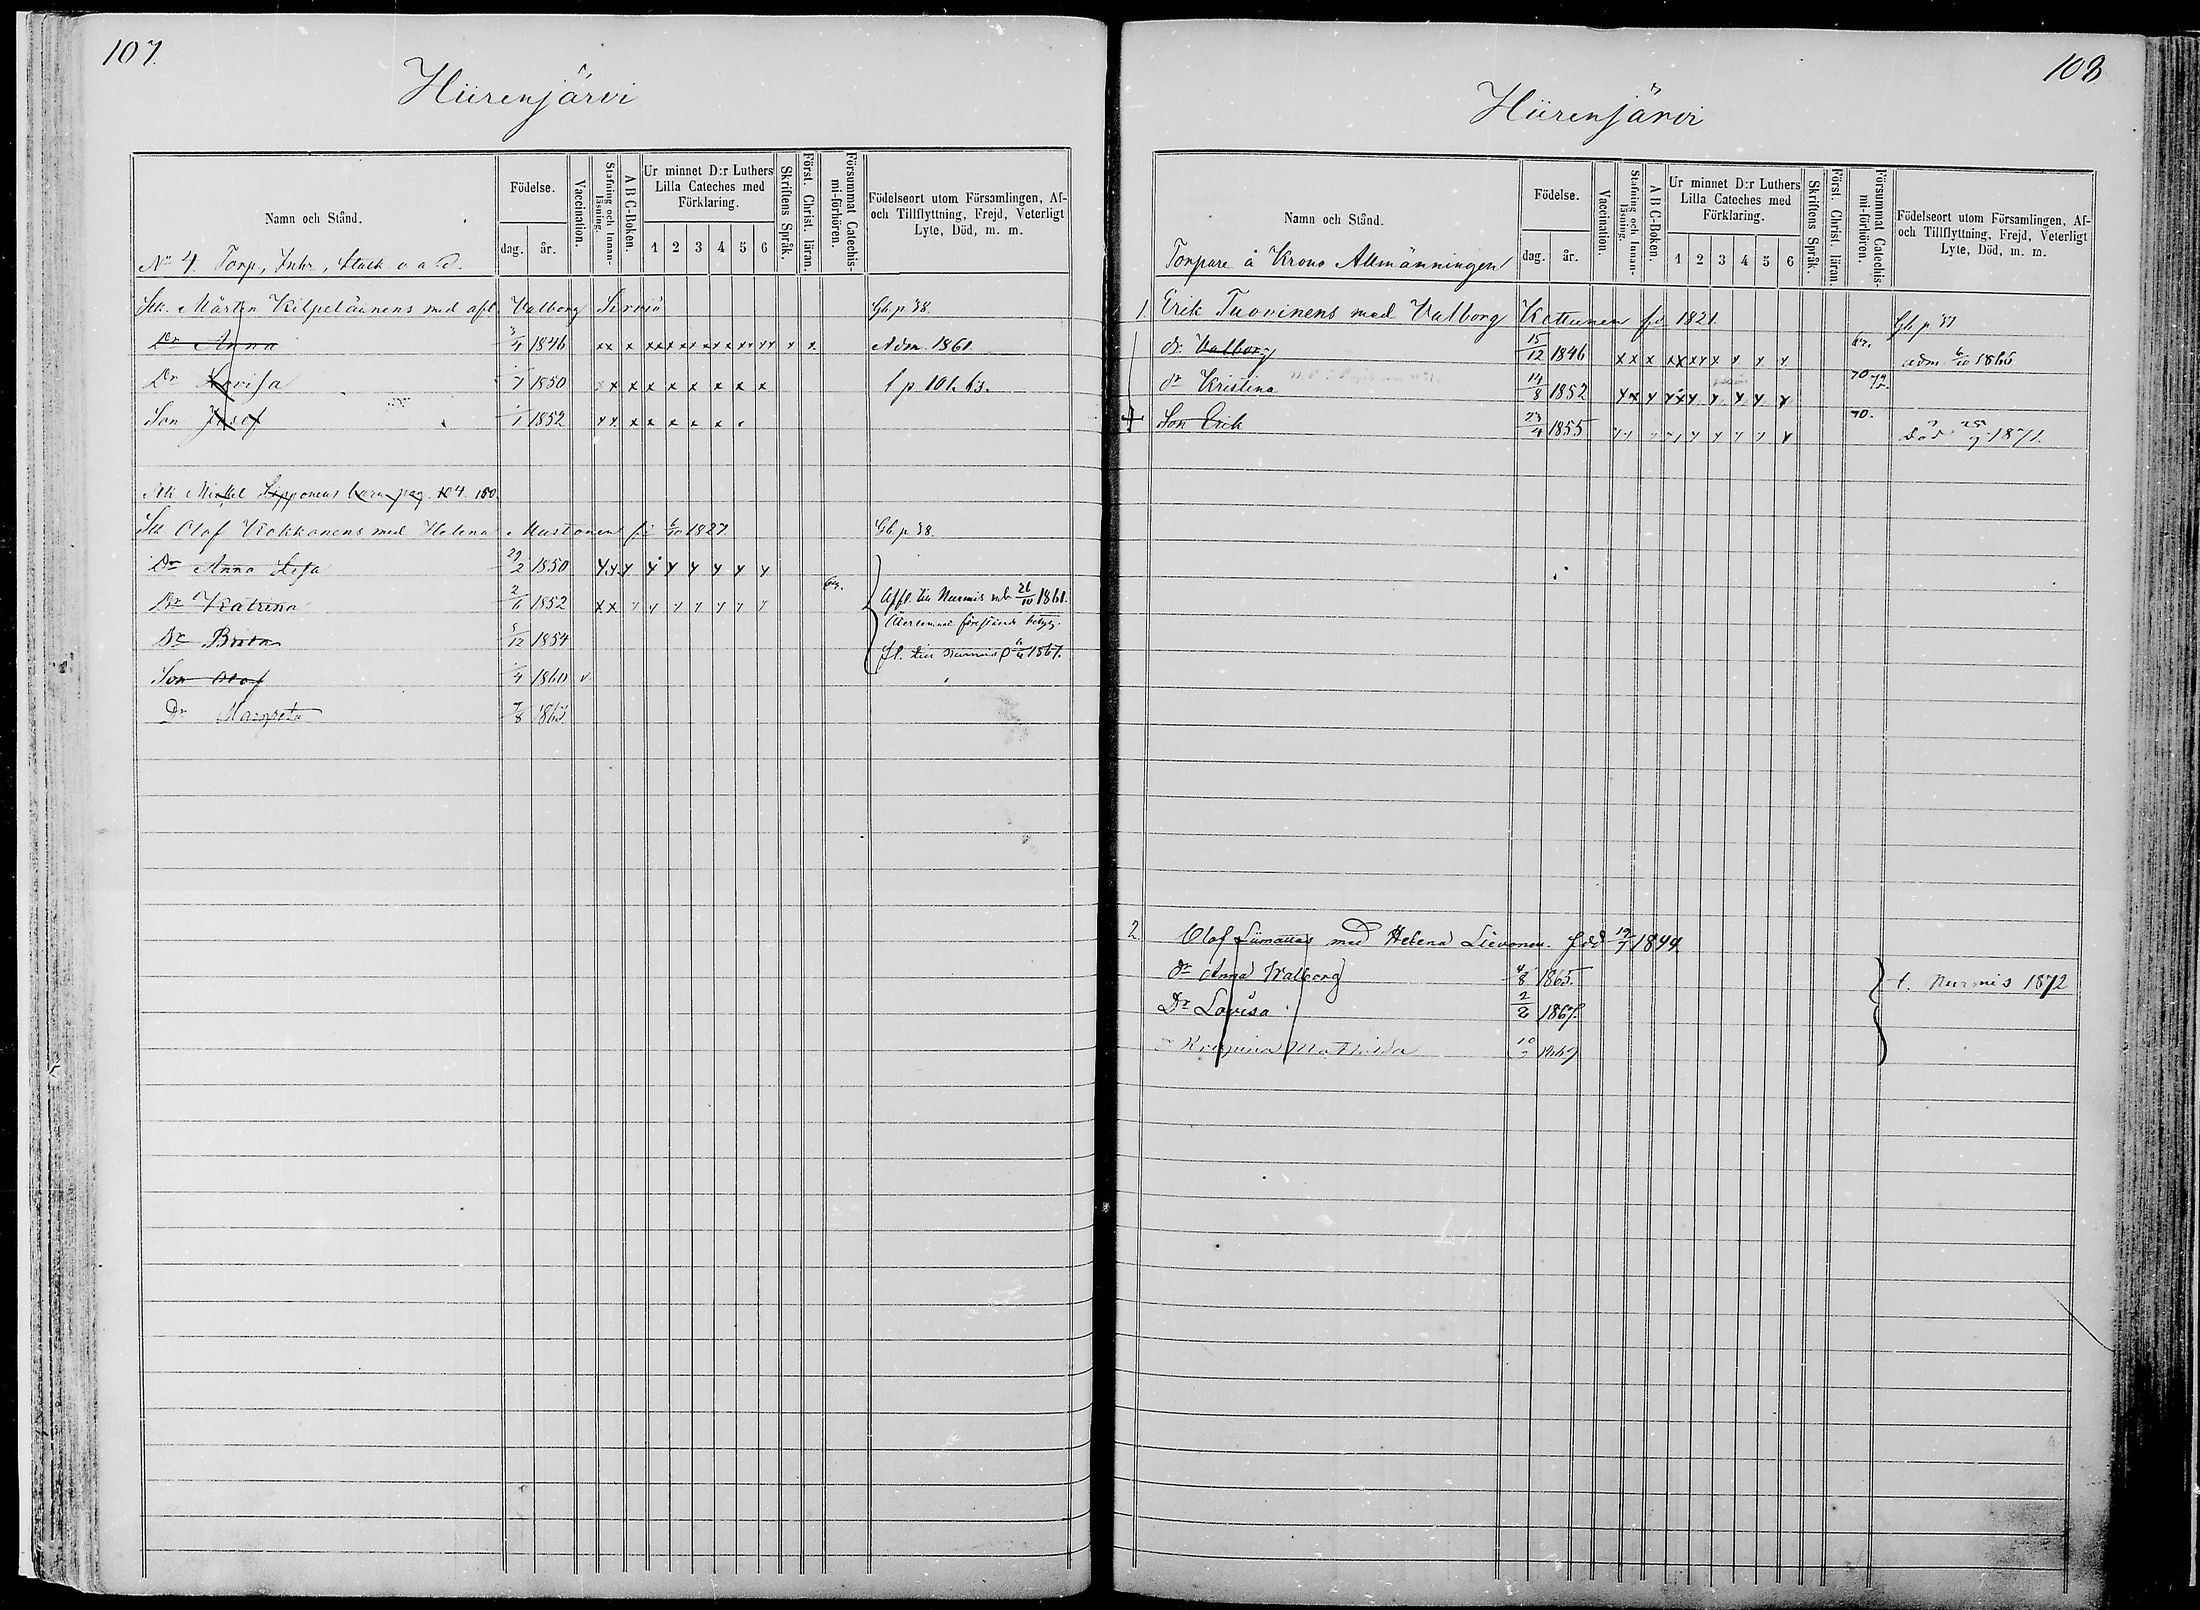 107.
Hiirenjärvi
Namn och Stånd.
Födelse.
dag. år.
Vaccination.
Stafning och Innan-läsning.
A B C-Boken.
Ur minnet D:r Luthers Lilla Cateches med Förklaring.
1 2 3 4 5 6
Skriftens Språk.
Först. Christ. läran.
Försummat Catechis-mi-förhören.
Födelseort utom Församlingen, Af- och Tillflyttning, Frejd, Veterligt Lyte, Död, m. m.
No 4. Torp, Inhr,
Mårten Kilpeläinens med afl Valborg Gb p 38.
Dr Anna 3/4 1846 xx x xxx xx xx xx xx Adm. 1861
Dr Lovisa 1850 x x x x x x x x t p 101. 63.
Son Josef 1852
Mickel Lipponens barn pag. 104. 150.
Olof Kokkonens med Helena Mustonen 1827 Gb p 38.
Dr Anna Lisa 29/2 1850
Dr Katrina 2/6 1852 Affl. till Nurmis 26/10 1861.
Dr Brita 5/12 1854
fl. till Nurmis 1867.
Son Olof /4 1860 v
Dr Margreta 7/8 1863
108
Hiirenjärvi
Namn och Stånd.
Födelse.
dag. år.
Vaccination.
Stafning och Innan-läsning.
A B C-Boken.
Ur minnet D:r Luthers Lilla Cateches med Förklaring.
1 2 3 4 5 6
Skriftens Språk.
Först. Christ. läran.
Försummat Catechis-mi-förhören.
Födelseort utom Församlingen, Af- och Tillflyttning, Frejd, Veterligt Lyte, Död, m. m.
Torpare å Krono Allmänningen
1 Erik Tuovinens med Valborg Kettunen 1821. Gb p 37
dr Valborg 15/12 1846 adm 6/10 1866
dr Kristina 14/8 1852 70 72.
+ Son Erik 23/4 1855 70. död 25/7 1871.
2. Olof Siimanas med Helena Lievonen. född 19/7 1844.
dr Anna Walborg 4/8 1865. t. Nurmis 1872
Dr Lovisa 2/2 1867.
Mathilda 10 1869